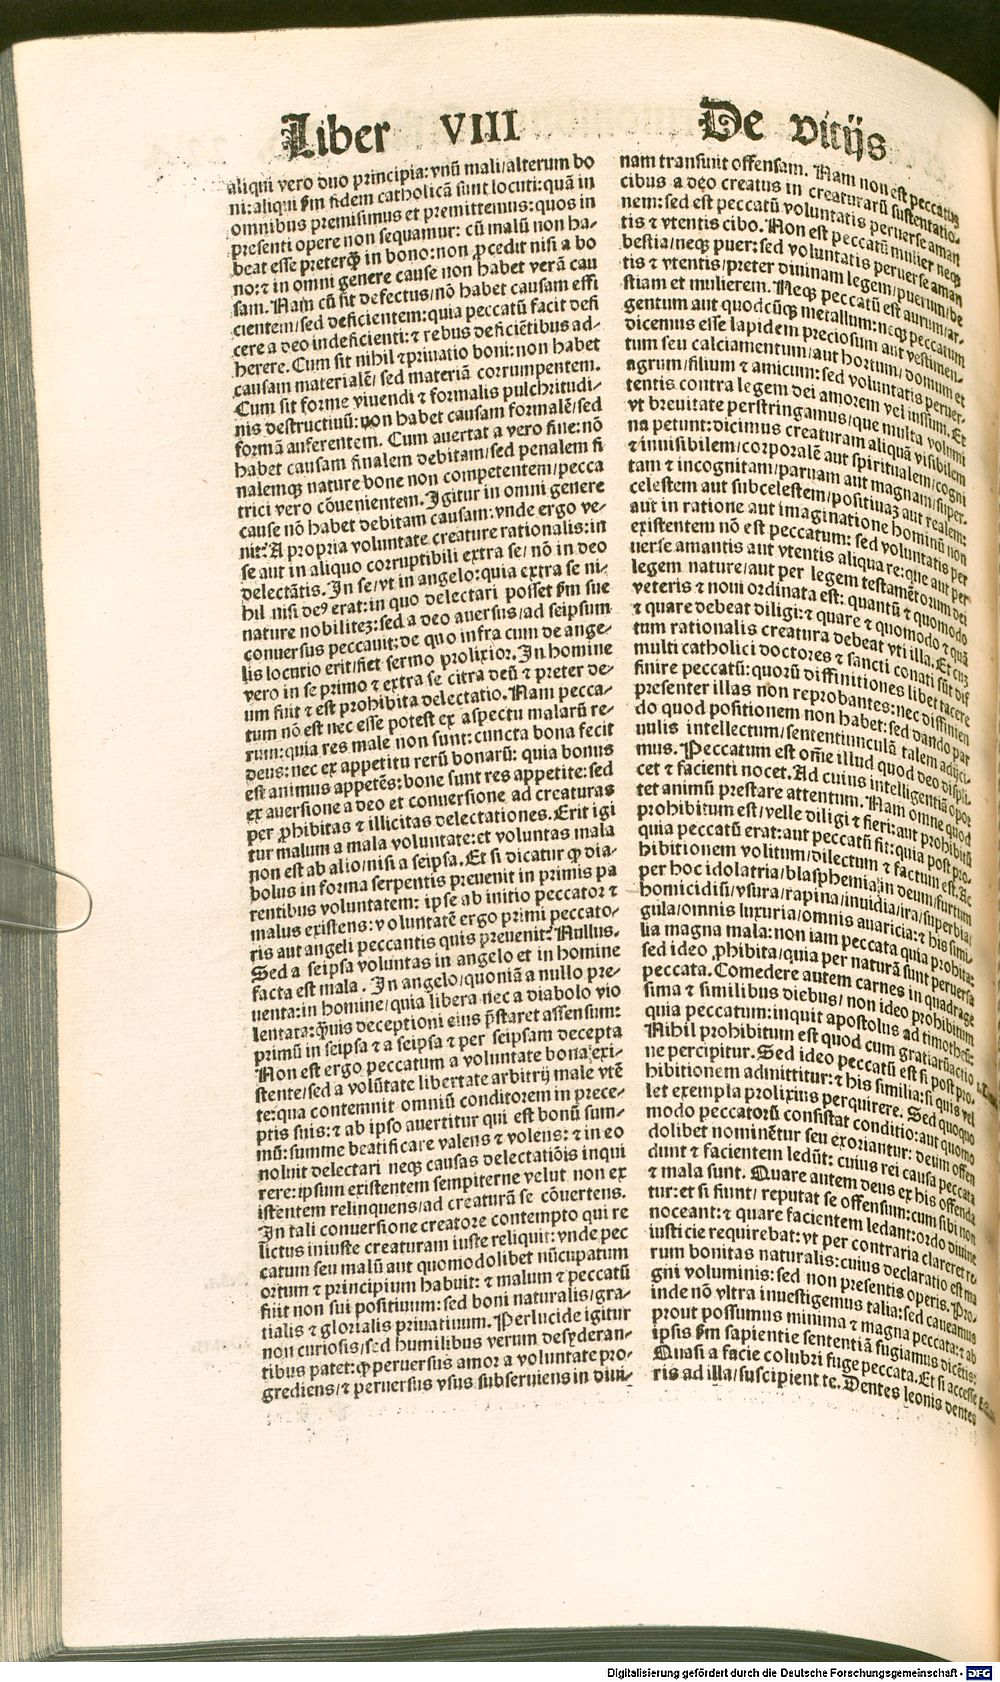 Liber VIII De vitijs
aliqui vero duo principia: vnū mali/alterum bo
ni: aliqui ẜm fidem catholicā sunt locuti: quā in
omnibus premisimus et premittemus: quos in
presenti opere non sequamur: cū malū non ha-
beat esse preterꝙ in bono: non ꝓcedit nisi a bo
no: ⁊ in omni genere cause non habet verā cau
sam. Nam cū sit defectus/nō habet causam effi
cientem/sed deficientem: quia peccatū facit defi
cere a deo indeficienti: ⁊ rebus deficiētibus ad-
herere. Cum sit nihil ⁊ priuatio boni: non habet
causam materialē/ sed materiā corrumpentem.
Cum sit forme viuendi ⁊ formalis pulchritudi-
nis destructiuū: non habet causam formalē/sed
formā auferentem. Cum auertat a vero fine: nō
habet causam finalem debitam/sed penalem fi
nalemqꝫ nature bone non competentem/pecca
trici vero cōuenientem. Igitur in omni genere
cause nō habet debitam causam: vnde ergo ve-
nit? A propria voluntate creature rationalis: in
se aut in aliquo corruptibili extra se/ nō in deo
delectātis. In se/vt in angelo: quia extra se ni-
hil nisi deꝰ erat: in quo delectari posset ẜm sue
nature nobiliteꝫ: sed a deo auersus/ad seipsum
conuersus peccauit: de quo infra cum de ange-
lis locutio erit/fiet sermo prolixior. In homine
vero in se primo ⁊ extra se citra deū ⁊ preter de-
um fuit ⁊ est prohibita delectatio. Nam pecca-
tum nō est nec esse potest ex aspectu malarū re-
rum: quia res male non sunt: cuncta bona fecit
deus: nec ex appetitu rerū bonarū: quia bonus
est animus appetēs: bone sunt res appetite: sed
ex auersione a deo et conuersione ad creaturas
per ꝓhibitas ⁊ illicitas delectationes. Erit igi
tur malum a mala voluntate: et voluntas mala
non est ab alio/nisi a seipsa. Et si dicatur ꝙ dia-
bolus in forma serpentis preuenit in primis pa
rentibus voluntatem: ipse ab initio peccator ⁊
malus existens: volūtatē ergo primi peccato-
ris aut angeli peccantis quis preuenit? Nullus.
Sed a seipsa voluntas in angelo et in homine
facta est mala. In angelo/quoniā a nullo pre-
uenta: in homine/quia libera nec a diabolo vio
lentata: ꝙuis deceptioni eius p̄staret assensum:
primū in seipsa ⁊ a seipsa ⁊ per seipsam decepta
Non est ergo peccatum a voluntate bona exi-
stente/sed a volūtate libertate arbitrij male vtē
te: qua contemnit omniū conditorem in prece-
ptis suis: ⁊ ab ipso auertitur qui est bonū sum-
mū: summe beatificare valens ⁊ volens: ⁊ in eo
noluit delectari neqꝫ causas delectatiōis inqui
rere: ipsum existentem sempiterne velut non ex
istentem relinquens/ad creaturā se cōuertens.
In tali conuersione creatore contempto qui re
lictus iniuste creaturam iuste reliquit: vnde pec
catum seu malū aut quomodolibet nūcupatum
ortum ⁊ principium habuit: ⁊ malum ⁊ peccatū
fuit non sui positiuum: sed boni naturalis/gra-
tialis ⁊ glorialis priuatiuum. Perlucide igitur
non curiosis/sed humilibus verum desyderan-
tibus patet: ꝙ peruersus amor a voluntate pro-
grediens/⁊ peruersus vsus subseruiens in diui-
nam transiuit offensam. Nam non est peccatuꝫ
cibus a deo creatus in creaturarū sustentatio-
nem: sed est peccatū voluntatis peruerse aman
tis ⁊ vtentis cibo. Non est peccatū mulier neqꝫ
bestia/neqꝫ puer: sed voluntatis peruerse aman
tis ⁊ vtentis/preter diuinam legem/puerum/be
stiam et mulierem. Neqꝫ peccatū est aurum/ar-
gentum aut quodcūqꝫ metallum: neqꝫ peccatum
dicemus esse lapidem preciosum aut vestimen-
tum seu calciamentum/aut hortum/domum et
agrum/filium ⁊ amicum: sed voluntatis peruer-
tentis contra legem dei amorem vel insum. Et
vt breuitate perstringamus/que multa volumi
na petunt: dicimus creaturam aliquā visibilem
⁊ inuisibilem/corporalē aut spiritualem/cogni
tam ⁊ incognitam/paruam aut magnam/super-
celestem aut subcelestem/positiuaꝫ aut realem:
aut in ratione aut imaginatione hominū non
existentem nō est peccatum: sed voluntatis per
uerse amantis aut vtentis aliqua re: que aut per
legem nature/aut per legem testamētorum dei
veteris ⁊ noui ordinata est: quantū ⁊ quomodo
⁊ quare debeat diligi: ⁊ quare ⁊ quomodo ⁊ quā
tum rationalis creatura debeat vti illa. Et cuꝫ
multi catholici doctores ⁊ sancti conati sūt dif
finire peccatū: quorū diffinitiones libet tacere
presenter illas non reprobantes: nec diffinien
do quod positionem non habet: sed dando par
uulis intellectum/sententiunculā talem adijci-
mus. Peccatum est om̄e illud quod deo displi-
cet ⁊ facienti nocet. Ad cuius intelligentiā opor
tet animū prestare attentum. Nam omne quod
prohibitum est/velle diligi ⁊ fieri: aut prohibitū
quia peccatū erat: aut peccatū fit: quia post pro-
hibitionem volitum/dilectum ⁊ factum est. Ac
per hoc idolatria/blasphemia in deum/furtum
homicidiū/vsura/rapina/inuidia/ira/superbia/
gula/omnis luxuria/omnis auaricia: ⁊ his simi-
lia magna mala: non iam peccata quia prohibita:
sed ideo ꝓhibita/quia per naturā sunt peruersa
peccata. Comedere autem carnes in quadrage
sima ⁊ similibus diebus/ non ideo prohibitum
quia peccatum: inquit apostolus ad timotheū:
Nihil prohibitum est quod cum gratiarūactio
ne percipitur. Sed ideo peccatū est si post pro-
hibitionem admittitur: ⁊ his similia: si quis vel
let exempla prolixius perquirere. Sed quoquo
modo peccatorū consistat conditio: aut quomo
dolibet nominētur seu exoriantur: deum offen
dunt ⁊ facientem ledūt: cuius rei causa peccata
⁊ mala sunt. Quare autem deus ex his offenda
tur: et si fiunt/ reputat se offensum: cum sibi non
noceant: ⁊ quare facientem ledant: ordo diuine
iusticie requirebat: vt per contraria clareret re
rum bonitas naturalis: cuius declaratio est ma
gni voluminis: sed non presentis operis. Pro-
inde nō vltra inuestigemus talia: sed caueamus
prout possumus minima ⁊ magna peccata: ⁊ ab
ipsis ẜm sapientie sententiā fugiamus dicētis:
Quasi a facie colubri fuge peccata. Et si accesse
ris ad illa/suscipient te. Dentes leonis dentes
Digitalisierung gefördert durch die Deutsche Forschungsgemeinschaft - DFG